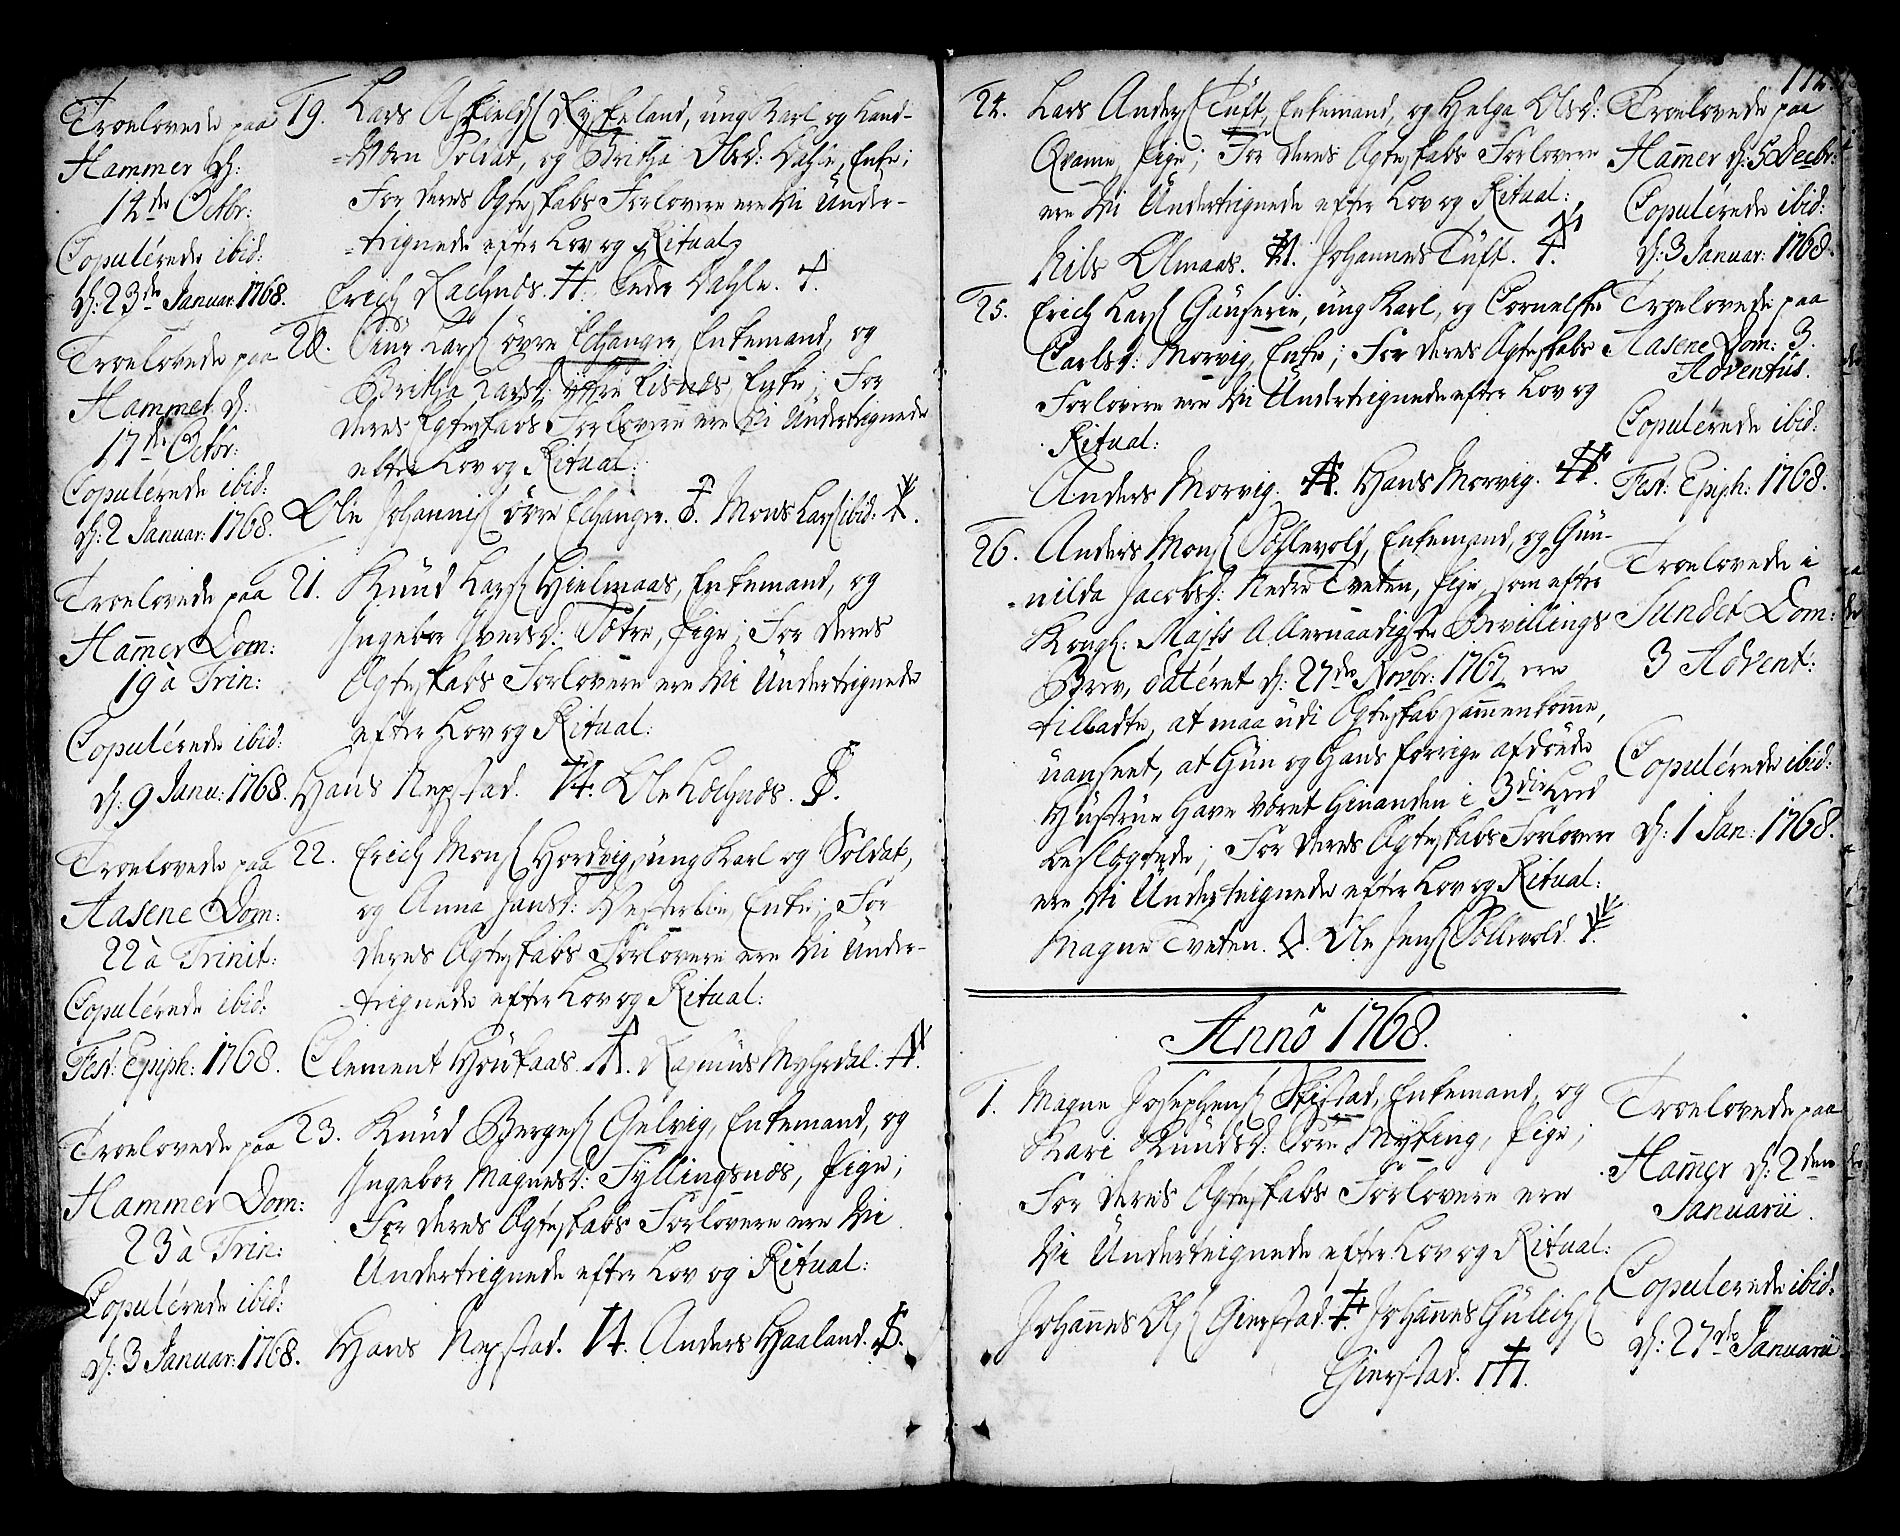 Troelovede paa
Hammer d:
12de Octbr:
Copulérede ibid:
d: 23de Januar: 1768.
19. Lars Askields Ryskeland, ung Karl og Land-
-Værn Soldat, og Britha Olsd: Dahle, Enke;
For deres Ægteskabs Forlovere ere Vi Under-
-tegnede efter Lov og Ritual,
Erich Rachnæs. Peder Dahle.
Troelovede paa
Hammer d:
17de Octbr:
Copulérede ibid:
d: 2 Januar: 1768.
20. Lars øvre Echanger, Enkemand, og
Britha Larsd: yttre Eisnæs, Enke; For
deres Egteskabs Forlovere ere Vi Undertegnede
efter Lov og Ritual:
Ole Johannis øvre Echanger. Mons Lars ibid:
Troelovede paa
Hamer Dom:
19 à Trin:
Copulérede ibid:
d: 9 Janu: 1768.
21. Knud Lars Hielmaas, Enkemand, og
Ingebor Iversd: Sætre, Pige; For deres
Ægteskabs Forlovere ere Vi Undertegnede
efter Lov og Ritual:
Hans Nepstad. Ole Lochnæs.
Troelovede paa
Aasene Dom:
22 à Trinit:
Copulérede ibid:
Fest: Epiph: 1768.
22. Erich Mons Hordvig, ung Karl og Soldat,
og Anna Jansd: Westerbøe, Enke; For
deres Ægteskabs Forlovere ere Vi Under-
-tegnede efter Lov og Ritual:
Clement Houkaas. Rasmus Myhrdal.
Troelovede paa
Hammer Dom:
23 à Trin:
Copulérede ibid:
d: 3 Januar: 1768.
23. Knud Berges Gelvig, Enkemand, og
Ingebor Magnesd: Fyllingsnæs, Pige;
For deres Ægteskabs Forlovere ere Vi
Undertegnede efter Lov og Ritual:
Hans Nepstad. Anders Haaland.
112
24. Lars Anders Tuft, Enkemand, og Helga Olsd:
Qvamme, Pige; For deres Ægteskabs Forlovere
ere Vi Undertegnede efter Lov og Ritual:
Nils Olmaas. Johannes Tuft.
Troelovede paa
Hamer d: 5 Decbr:
Copulérede ibid:
d: 3 Januar: 1768.
25. Erich Lars , ung Karl, og Cornelske
Carlsd: Morvig, Enke; For deres Ægteskabs
Forlovere ere Vi Undertegnede efter Lov og
Ritual:
Anders Morvig. Hans Morvig.
Troelovede paa
Aasene Dom: 3.
Adventus.
Copulérede ibid:
Fest: Epiph: 1768.
26. Anders Mons Sollevold, Enkemand, og Gun-
-nilda Jacobsd: Nedre Tveten, Pige, som efter
Kongl: Majts Allernaadigste Bevillings
Brev, datéret d: 27de Novbr: 1767, ere
tilladte, at maa udi Ægteskab sammenkomme,
uanseet, at Hun og Hans forrige afdøde
Hustrue have været hinanden i 3die Leed
beslægtede; For deres Ægteskabs Forlovere
ere Vi Undertegnede efter Lov og Ritual:
Magne Tveten. Ole Jens Sollevold.
Troelovede i
Sundet Dom:
3 Advent:
Copulérede ibid:
d: 1 Jan: 1768.
Annô 1768.
1. Magne Josephens Skistad, Enkemand, og
Kari Knudsd: Søre Myking, Pige;
For deres Ægteskabs Forlovere ere
Vi Undertegnede efter Lov og Ritual:
Johannes Ols Gierstad. Johannes Gulichs
Gierstad.
Troelovede paa
Hamer d: 2den
Januarii.
Copulerede ibid:
d: 27de Januarii